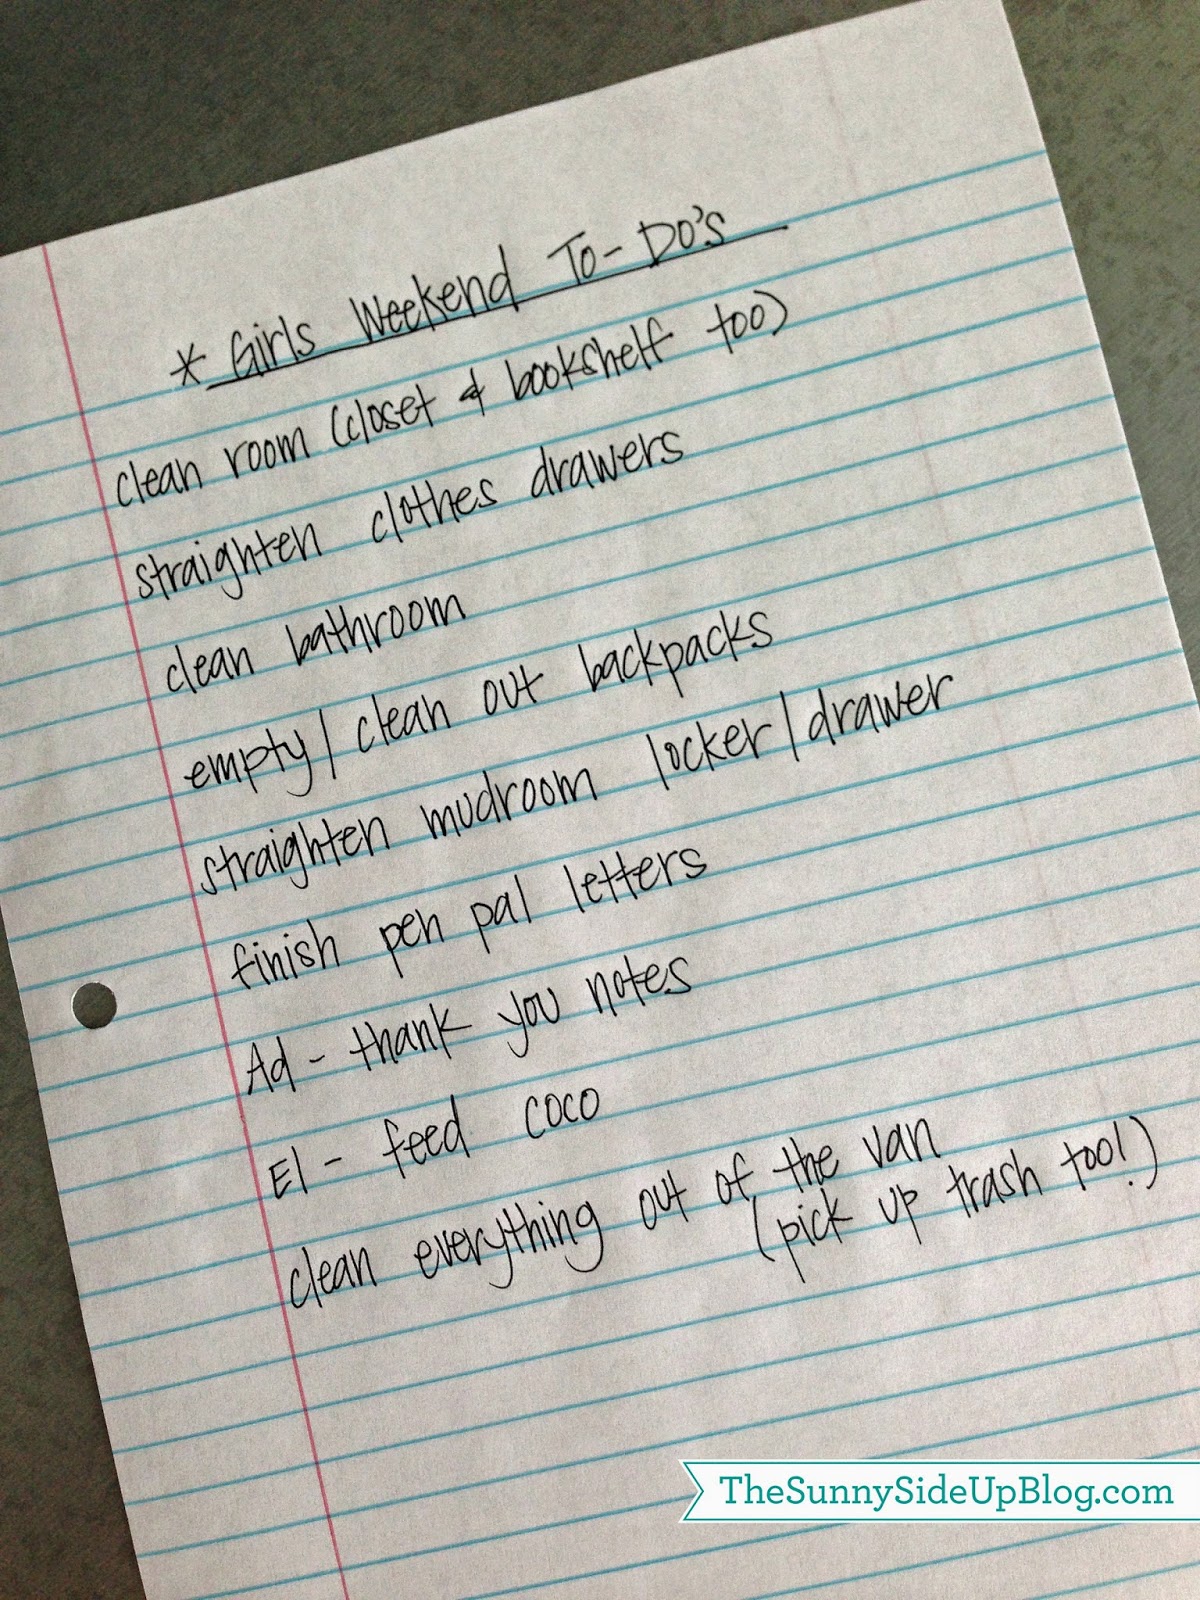 * Girls Weekend To-Do's
clean room (closet & bookshelf too)
straighten clothes drawers
clean bathroom
empty/clean out backpacks
straighten mudroom locker/drawer
finish pen pal letters
Ad - thank you notes
El - feed coco
clean everything out of the van
(pick up trash too!)
TheSunnySideUpBlog.com